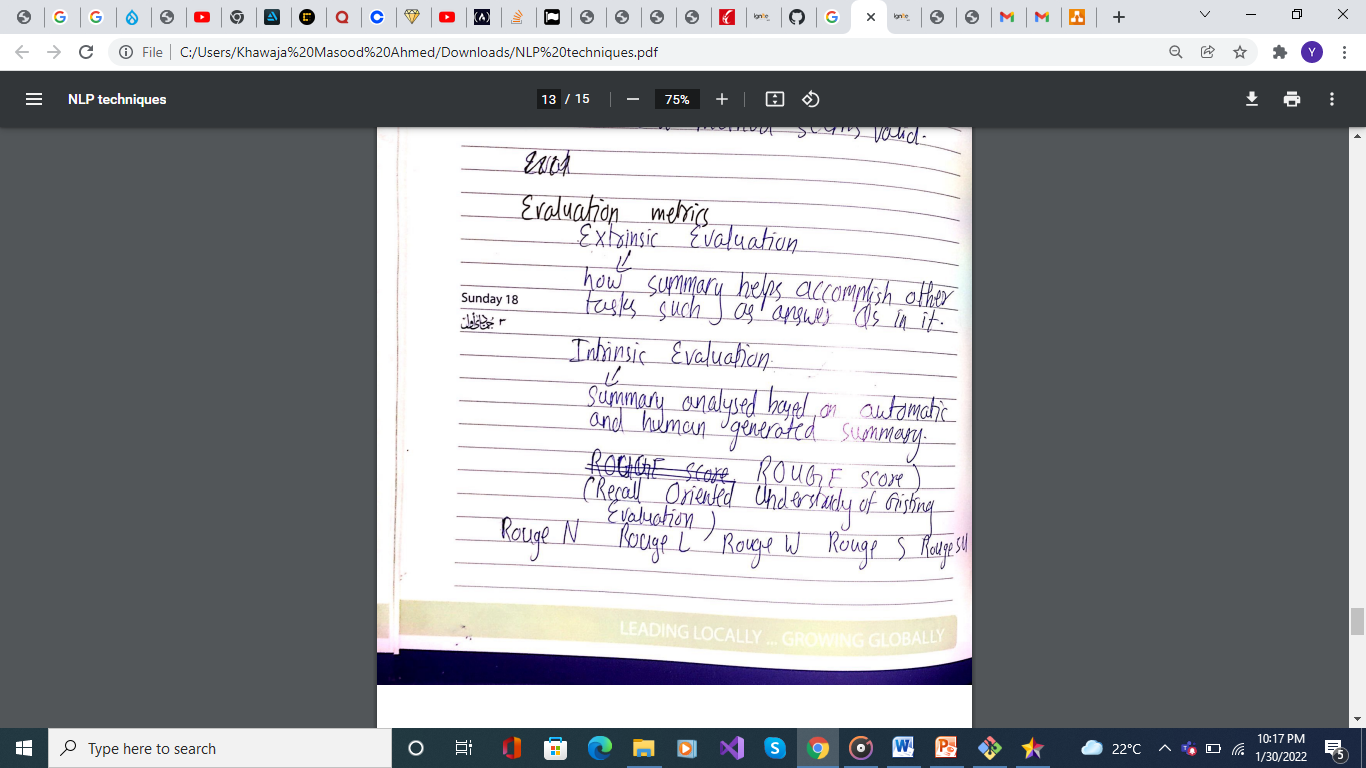 File C:/Users/Khawaja%20Masood%20Ahmed/Downloads/NLP%20techniques.pdf
Y
NLP techniques
13 / 15
75%
valid.
Evaluation metrics
Extrinsic Evaluation
how summary helps accomplish other
Sunday 18
tasks such as answer Qs in it.
Intrinsic Evaluation
Summary analysed based on automatic
and human generated summary.
ROUGE score ROUGE score)
(Recall Oriented Understudy of Gisting
Evaluation)
Rouge N Rouge L Rouge W Rouge S Rouge SU
LEADING LOCALLY ... GROWING GLOBALLY
Type here to search
22°C
10:17 PM
1/30/2022
5